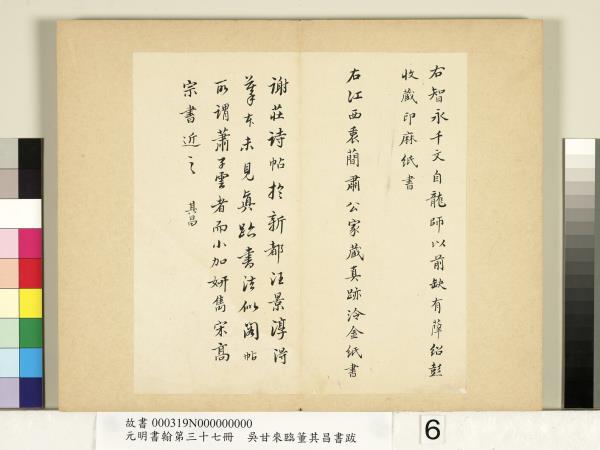 右智永千文自龍師以前缺有薛紹彭
收藏印麻紙書
右江西袁蘭肅公家藏真跡冷金紙書
謝莊詩帖於新都汪景淳得
摹本未見真跡書法似閣帖
所謂蕭子雲者而小加妍雋宋高
宗書近之 其昌
故書 000319N000000000
元明書翰第三十七冊 吳甘來臨董其昌書跋
6